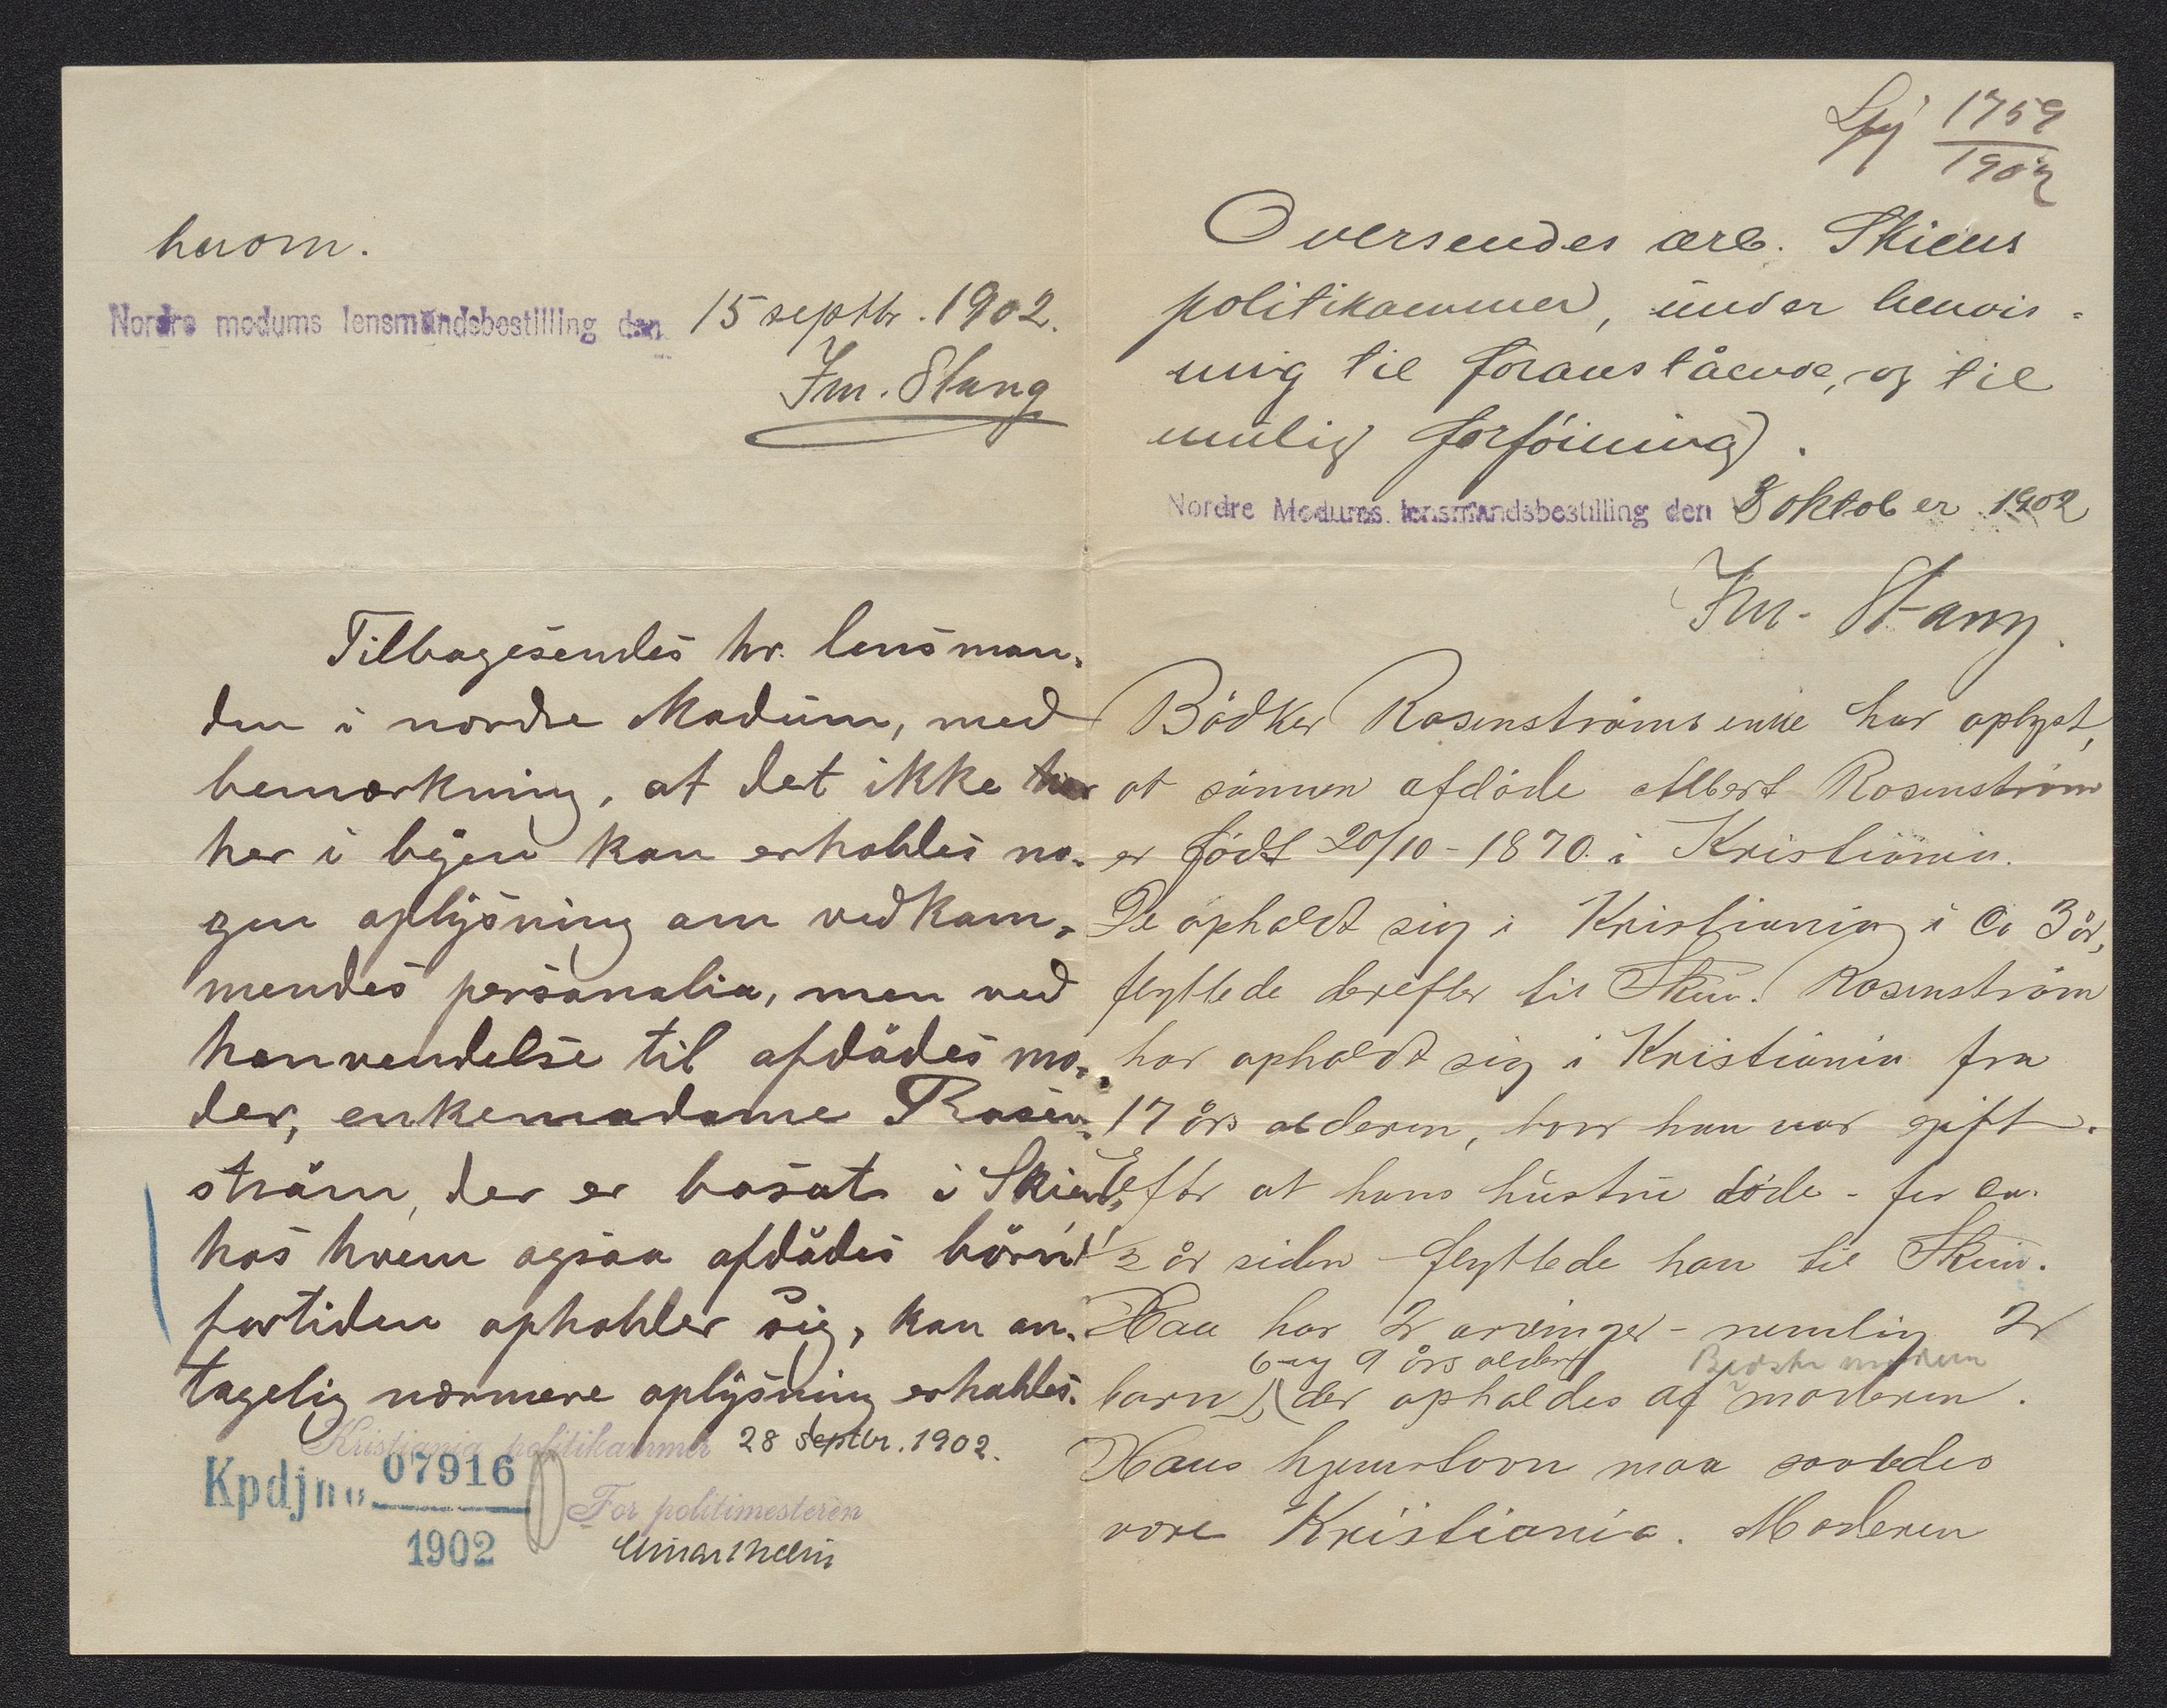 herom.
Nordre modums lensmandsbestilling den 15 septbr. 1902.
Im. Stang
Tilbagesendes hr. lensman-
den i nordre Modum, med
bemærkning, at det ikke har
her i byen kan erholdes no-
gen oplysning om vedkom-
mendes personalia, men ved
henvendelse til afdødes mo-
der, enkemadame Rosen-
strøm, der er bosat i Skien,
hos hvem ogsaa afdødes børn
fortiden opholder sig, kan an-
tagelig nærmere oplysning erholdes.
Kristiania politikammer 28 Septbr. 1902.
Kpdjno. 07916
1902
For politimesteren
Lfj 1759
1902
Oversendes ærb. Skiens
politikammer, under henvis-
ning til foranstående, og til
mulig forföining.
Nordre Modums lensmandsbestilling den 3 oktober 1902
Im. Stang.
Bödker Rosenstrøms enke har oplyst,
at sønnen afdøde Albert Rosenstrøm
er født 20/10-1870 i Kristiania.
De opholdt sig i Kristiania i ca 3 år,
flyttede derefter til Skien. Rosenstrøm
har opholdt sig i Kristiania fra
17 års alderen, hvor han var gift.
Efter at hans hustru døde - for ca.
1/2 år siden - flyttede han til Skien.
Han har 2 arvinger - nemlig 2
6 og 9 års alderen Bedstemoderen
barn, (der opholdes af moderen.
Hans hjemstavn maa saaledes
være Kristiania. Moderen